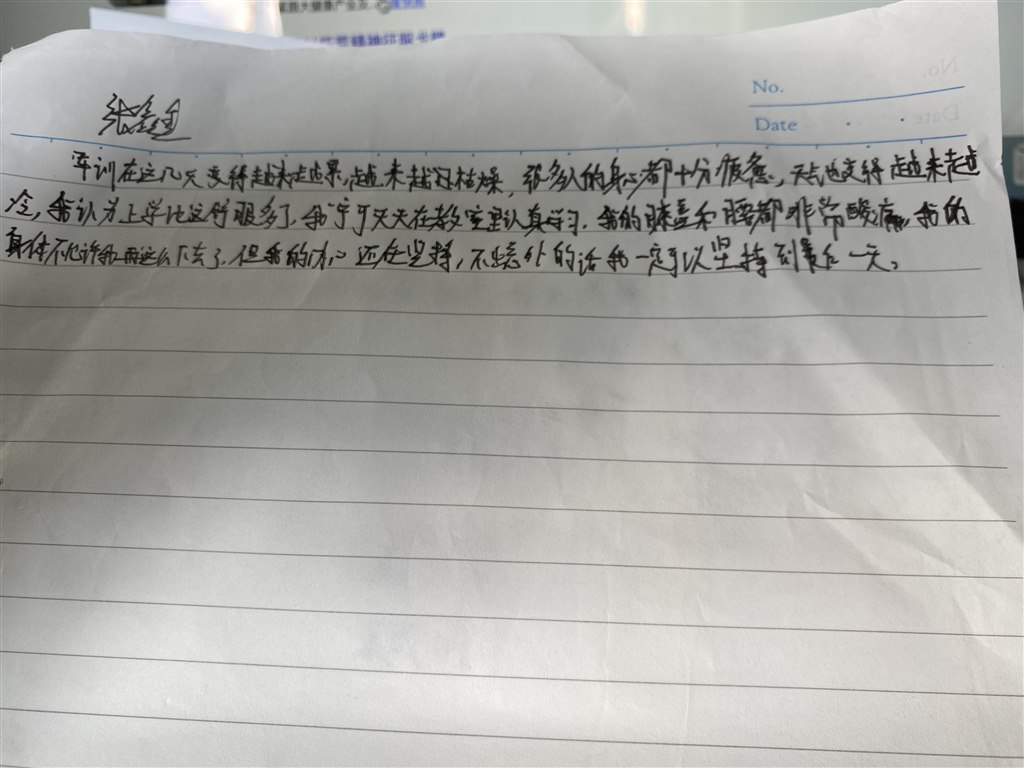 No.
Date
张鑫全
军训在这几天变得越来越累,越来越的枯燥,很多人的身心都十分疲惫,天气也变得越来越
冷,我认为上学比这舒服多了,我宁可天天在教室里认真学习.我的膝盖和腰都非常酸痛,我的
身体不允许我再这么下去了,但我的内心还在坚持,不出意外的话我一定可以坚持到最后一天。